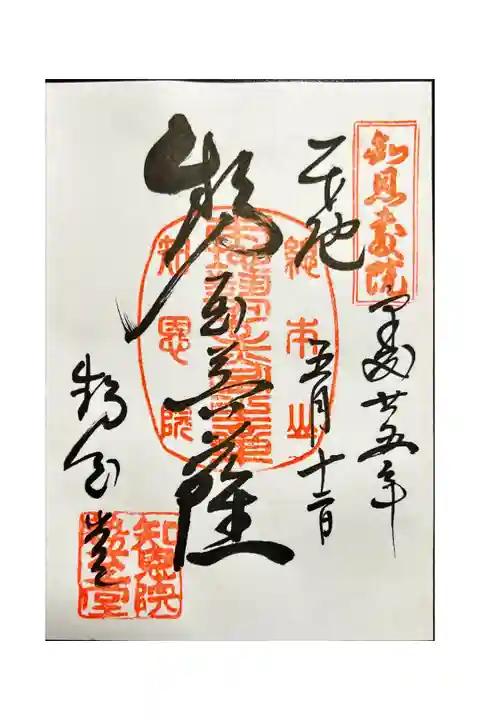 知恩教院
平成廿五年
奉拝
五月十二日
総本山
知恩院
勢至菩薩
勢至堂
知恩院
勢至堂